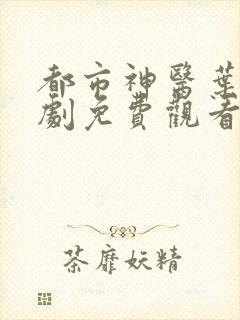 都市神醫葉
劇免費觀看
茶靡妖精